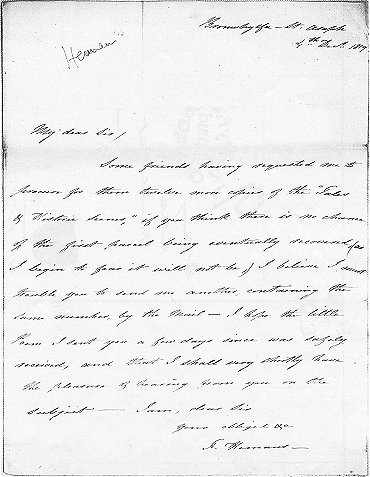 Hemans
Bronwhylfa – St Asaph
4th Dec. 1819
My dear Sir,
Some friends having requested me to
procure for them twelve more copies of the "Tales
& Historic Scenes," if you think there is no chance
of the first parcel being eventually recovered, (as
I begin to fear it will not be) I believe I must
trouble you to send me another, containing the
same number, by the Mail – I hope the little
Poem I sent you a few days since was safely
received, and that I shall very shortly have
the pleasure of hearing from you on the
subject — I am, dear Sir
your obliged &c
F. Hemans —